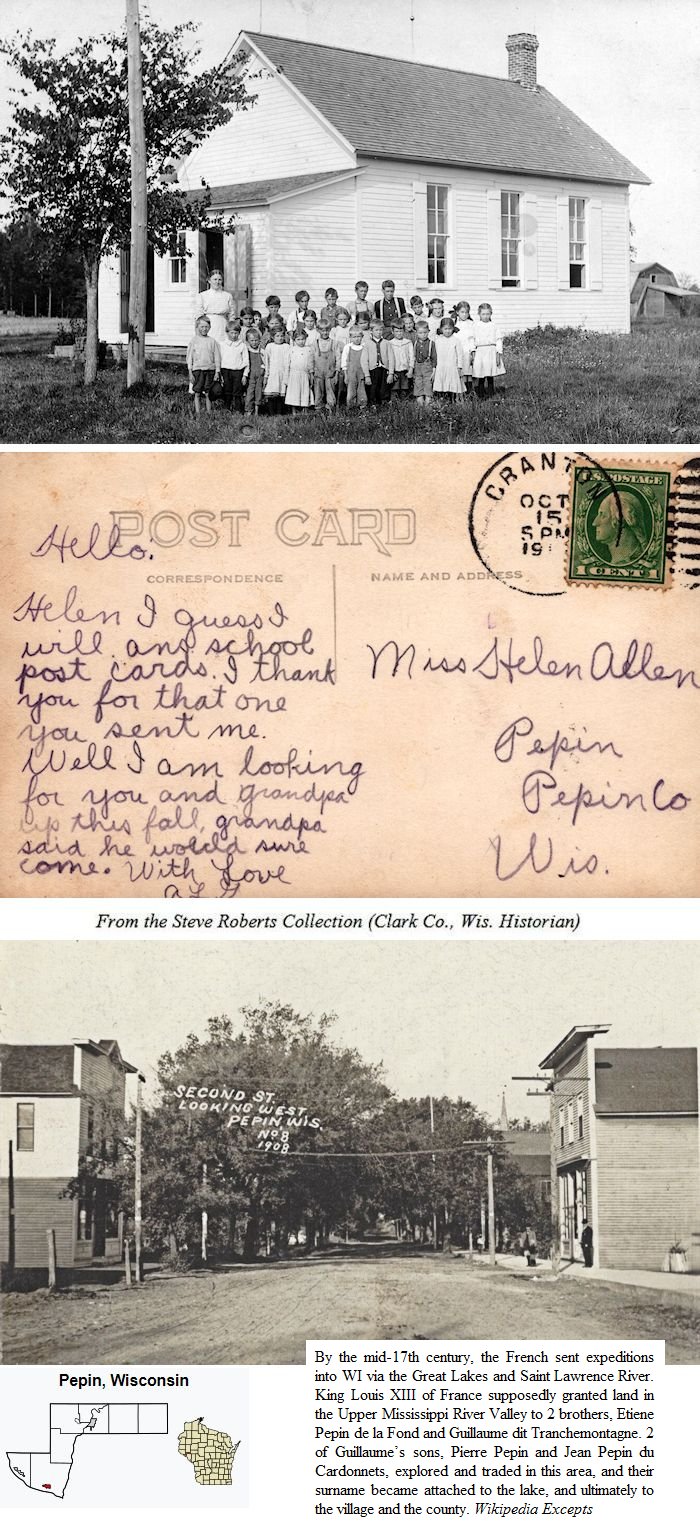 POST CARD
CORRESPONDENCE
NAME AND ADDRESS
GRANTON
OCT
15
5 PM
19
U.S. POSTAGE
1 CENT 1
Hello:
Helen I guess I
will ans school
post cards. I thank
you for that one
you sent me.
Well I am looking
for you and Grandpa
up this fall, grandpa
said he would sure
come. With Love
Miss Helen Allen
Pepin
Pepin Co
Wis.
From the Steve Roberts Collection (Clark Co., Wis. Historian)
SECOND ST.
LOOKING WEST
PEPIN WIS.
No 8
1908
By the mid-17th century, the French sent expeditions
into WI via the Great Lakes and Saint Lawrence River.
King Louis XIII of France supposedly granted land in
the Upper Mississippi River Valley to 2 brothers, Etiene
Pepin de la Fond and Guillaume dit Tranchemontagne. 2
of Guillaume's sons, Pierre Pepin and Jean Pepin du
Cardonnets, explored and traded in this area, and their
surname became attached to the lake, and ultimately to
the village and the county. Wikipedia Excepts
Pepin, Wisconsin